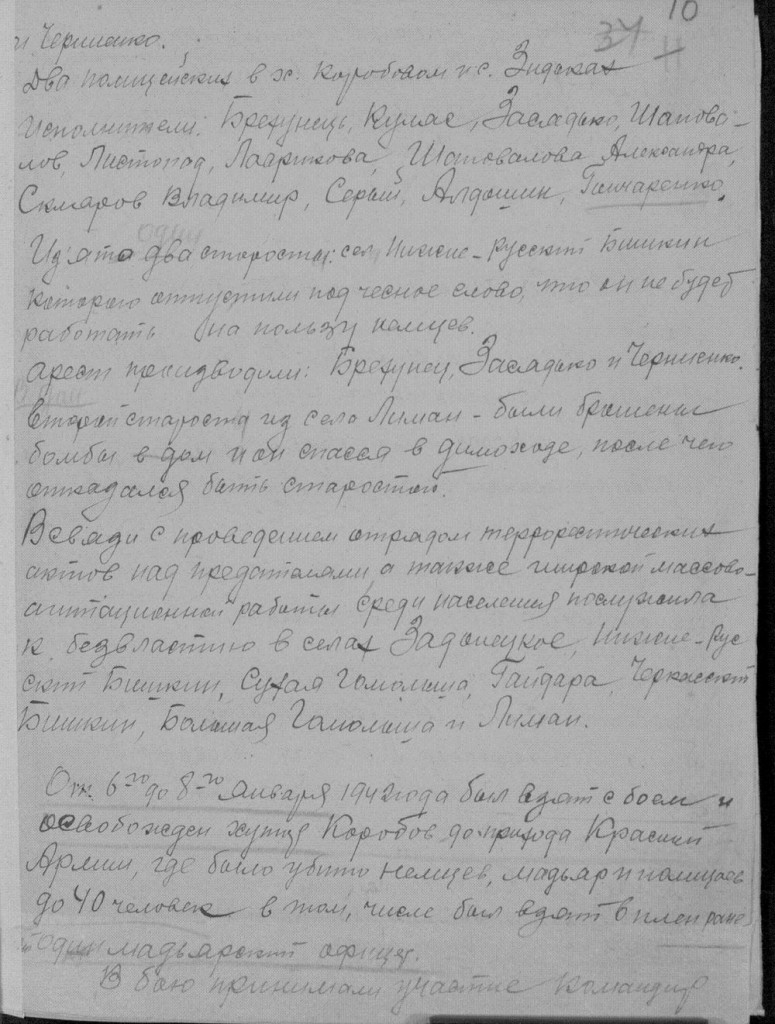 10
34
11
и Черниенко.
Два полицейских в х. Коробовом и с. Зидьках
Исполнители: Брехунець, Кулас, Засядько, Шапова-
лов, Листопад, Шаповалова Александра,
Скляров Владимир, Серый, Алдошин, Гончаренко.
один
Из'ято два старосты: сел Нижне-русский Бишкин
которого отпустили под чесное слово, что он не будет
работать на пользу немцев.
арест производили: Брехунец, Засядько и Черниенко.
Второй староста из село Лиман - были брошены
бомбы в дом и он спасся в димоходе, после чего
отказался быть старостой.
Всвязи с проведением отрядом террористических
актов над предателями, а также широкой массово-
агитационной работы среди населения послужила
к безвластию в селах Задонецкое, Нижне-Рус
ский Бишкин, Сухая Гомольша, Гайдара, Черкасский
Бишкин, Большая Гомольша и Лиман.
От 6-го до 8-го января 1942 года был взят с боем и
освобожден хутор Коробов до прихода Красной
Армии, где было убито немцев, мадьяр и полицаев
до 40 человек в том, числе был взят в плен ране
один мадьярский офицер.
В бою принимали участие командир